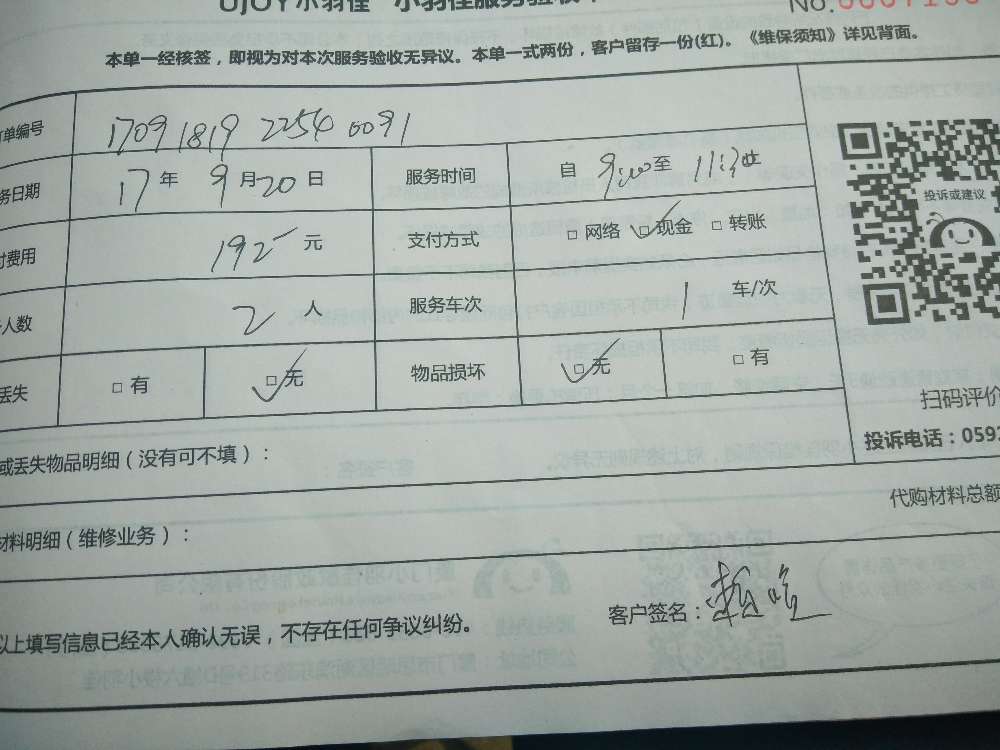 UJOY小羽佳 小羽佳服务验收单
No.
本单一经核签，即视为对本次服务验收无异议。本单一式两份，客户留存一份(红)。《维保须知》详见背面。
单编号 17091819 2254 0091
务日期 17年 9月20日 服务时间 自 9:00至 11:30止
费用 192元 支付方式 □网络 ☑现金 □转账
人数 2人 服务车次 1 车/次
丢失 □有 ☑无 物品损坏 ☑无 □有
投诉或建议
扫码评价
投诉电话：059
或丢失物品明细（没有可不填）：
代购材料总额
材料明细（维修业务）：
以上填写信息已经本人确认无误，不存在任何争议纠纷。
客户签名：